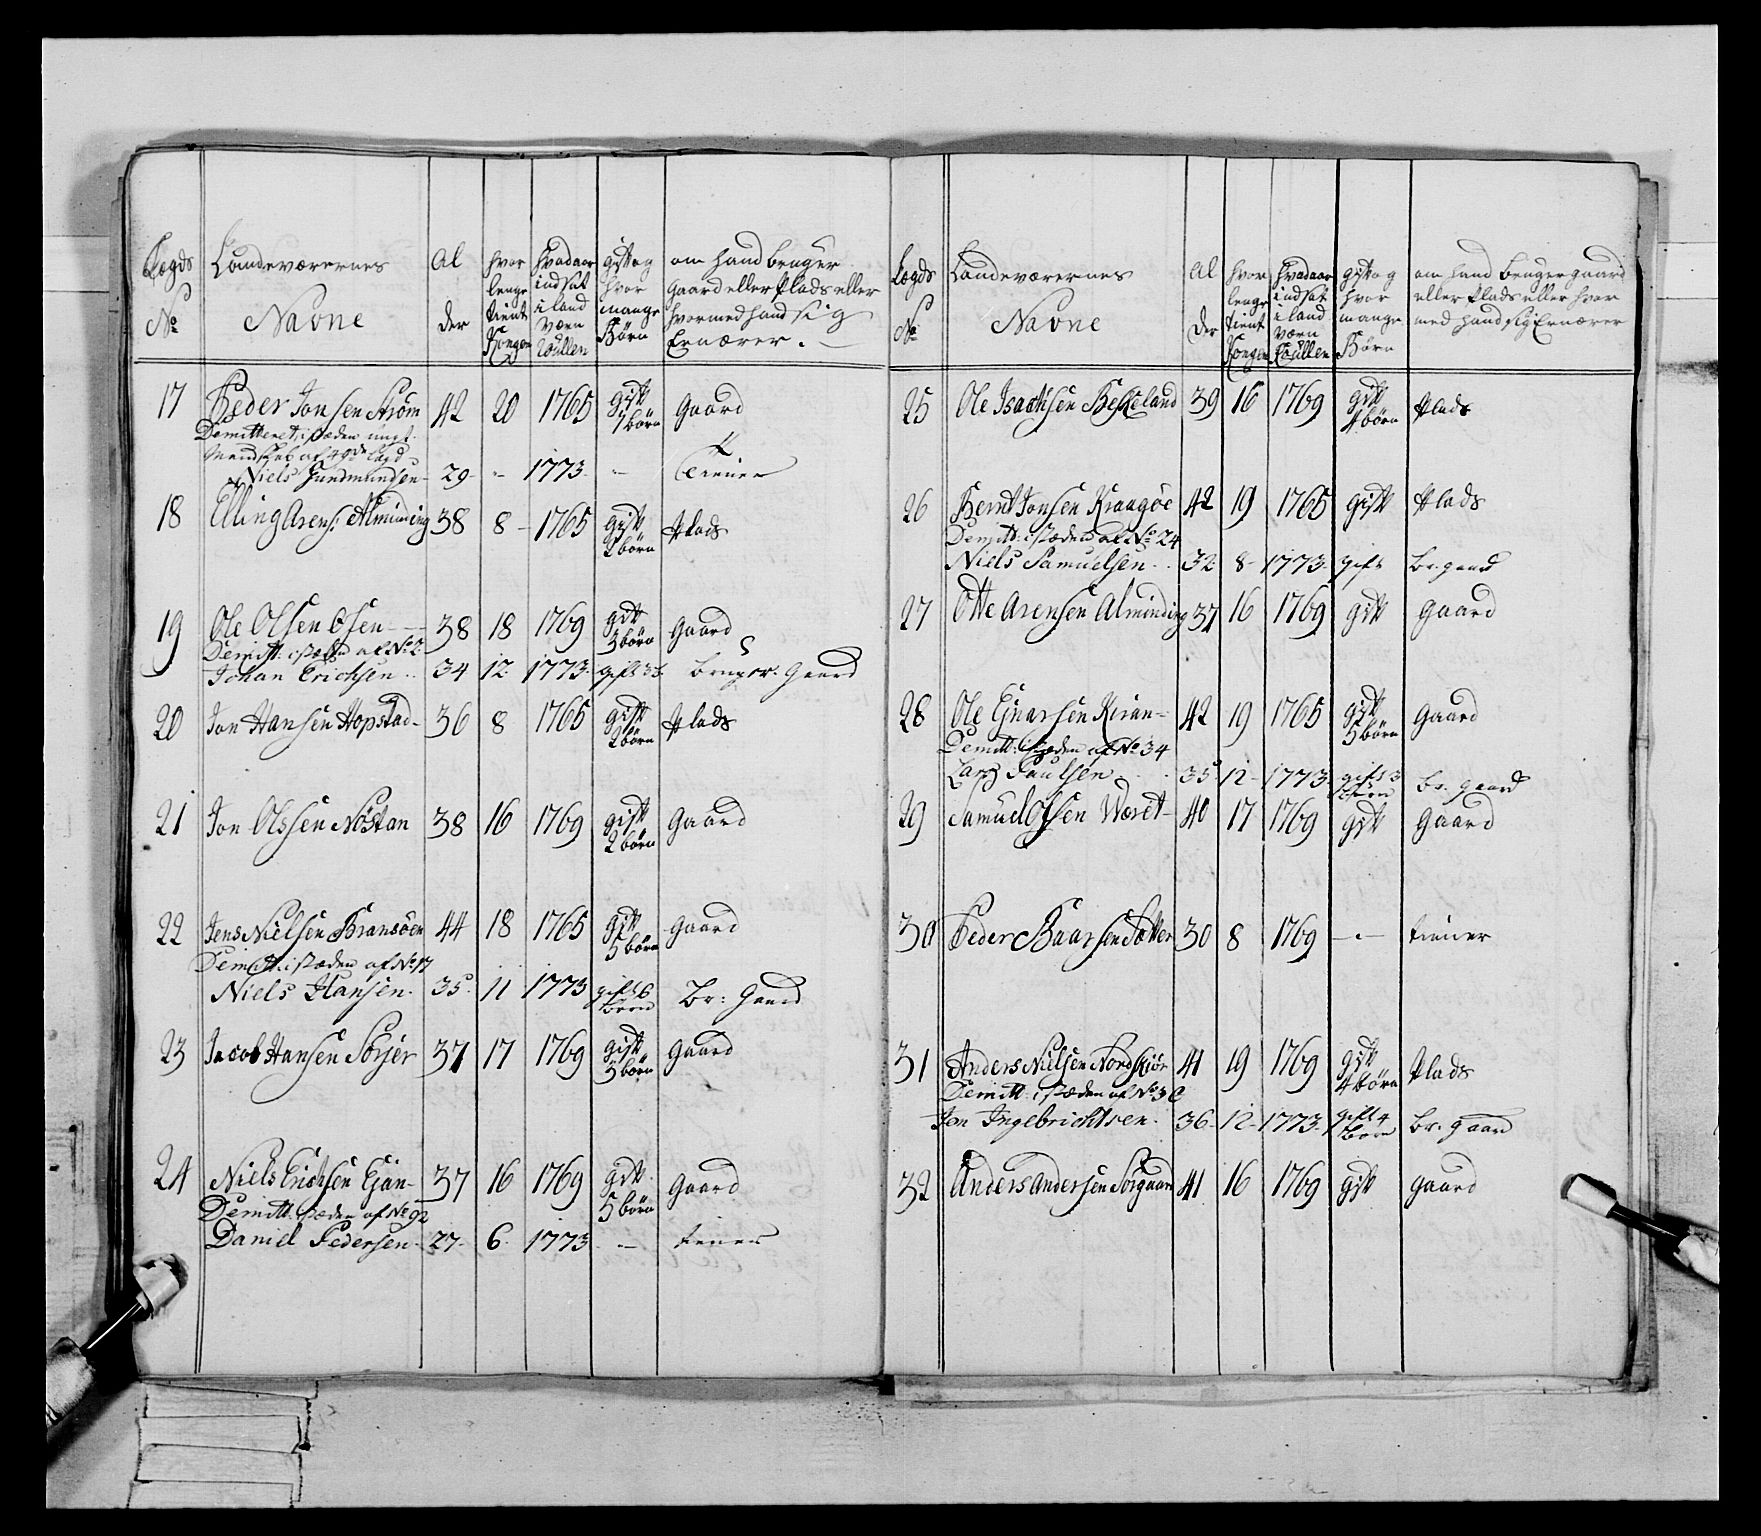 Lægds No
Landeværernes Navne
Al der
hvor lenge tient Kongen
hvad aar indsat i land væn Roullen
gift og hvor mange Børn
om hand bruger Gaard eller Plads eller hvormed hand sig Ernærer.
17 Peder Jonsen Strøm 42 20 1765 gift 1 børn Gaard
Demitteret, i stæden
Mandskab af 49de Lægd
Niels Gundmundsen 29 - 1773 - tiener
18 Elling Arens: Alminding 38 8 1765 gift 2 børn Plads
19 Ole Olsen Osen 38 18 1769 gift 3 børn Gaard
Demitt: i stæden af No 2
Johan Erichsen 34 12 1773 gift 3 b. bruger Gaard
20 Jon Hansen Hopstad 36 8 1765 gift 2 børn Plads
21 Jon Olssen Nøstan 38 16 1769 gift 2 børn Gaard
22 Jens Nielsen Bransøen 44 18 1765 gift 5 børn Gaard
Demitt: i stæden af No 17
Niels Hansen 35 11 1773 gift 6 børn Br: Gaard
23 Jacob Hansen Sørjer 37 17 1769 gift 3 børn Gaard
24 Niels Erichsen Ejan 37 16 1769 gift 5 børn Gaard
Demitt: stæden af No 92
Daniel Pedersen 27 6 1773 - tiener
Lægds No
Landeværernes Navne
Al der
hvor lenge tient Kongen
hvad aar indsat i land væn Roullen
gift og hvor mange Børn
om hand bruger gaard eller Plads eller hvor med hand sig Ernærer
25 Ole Isachsen Beskeland 39 16 1769 gift 4 børn Plads
26 Bernt Jonsen Kraagøe 42 19 1765 gift Plads
Demitt: i stæden af No 24
Niels Samuelsen 32 8 1773 gift br. gaard
27 Otte Arensen Alminding 37 16 1769 gift Gaard
28 Ole Ejnarsen Kiran 42 19 1765 gift 5 børn Gaard
Demitt: i stæden af No 34
Lars Paulsen 35 12 1773 gift 3 børn br. gaard
29 Samuel Olsen Wæret 40 17 1769 gift Gaard
30 Peder Baarsen Sætter 30 8 1769 - tiener
31 Anders Nielsen Nordskiør 41 19 1769 gift 4 børn Plads
Demitt: i stæden af No 36
Jon Ingebrichtsen 36 12 1773 gift 4 børn br. gaard
32 Anders Andersen Sørgaard 41 16 1769 gift gaard